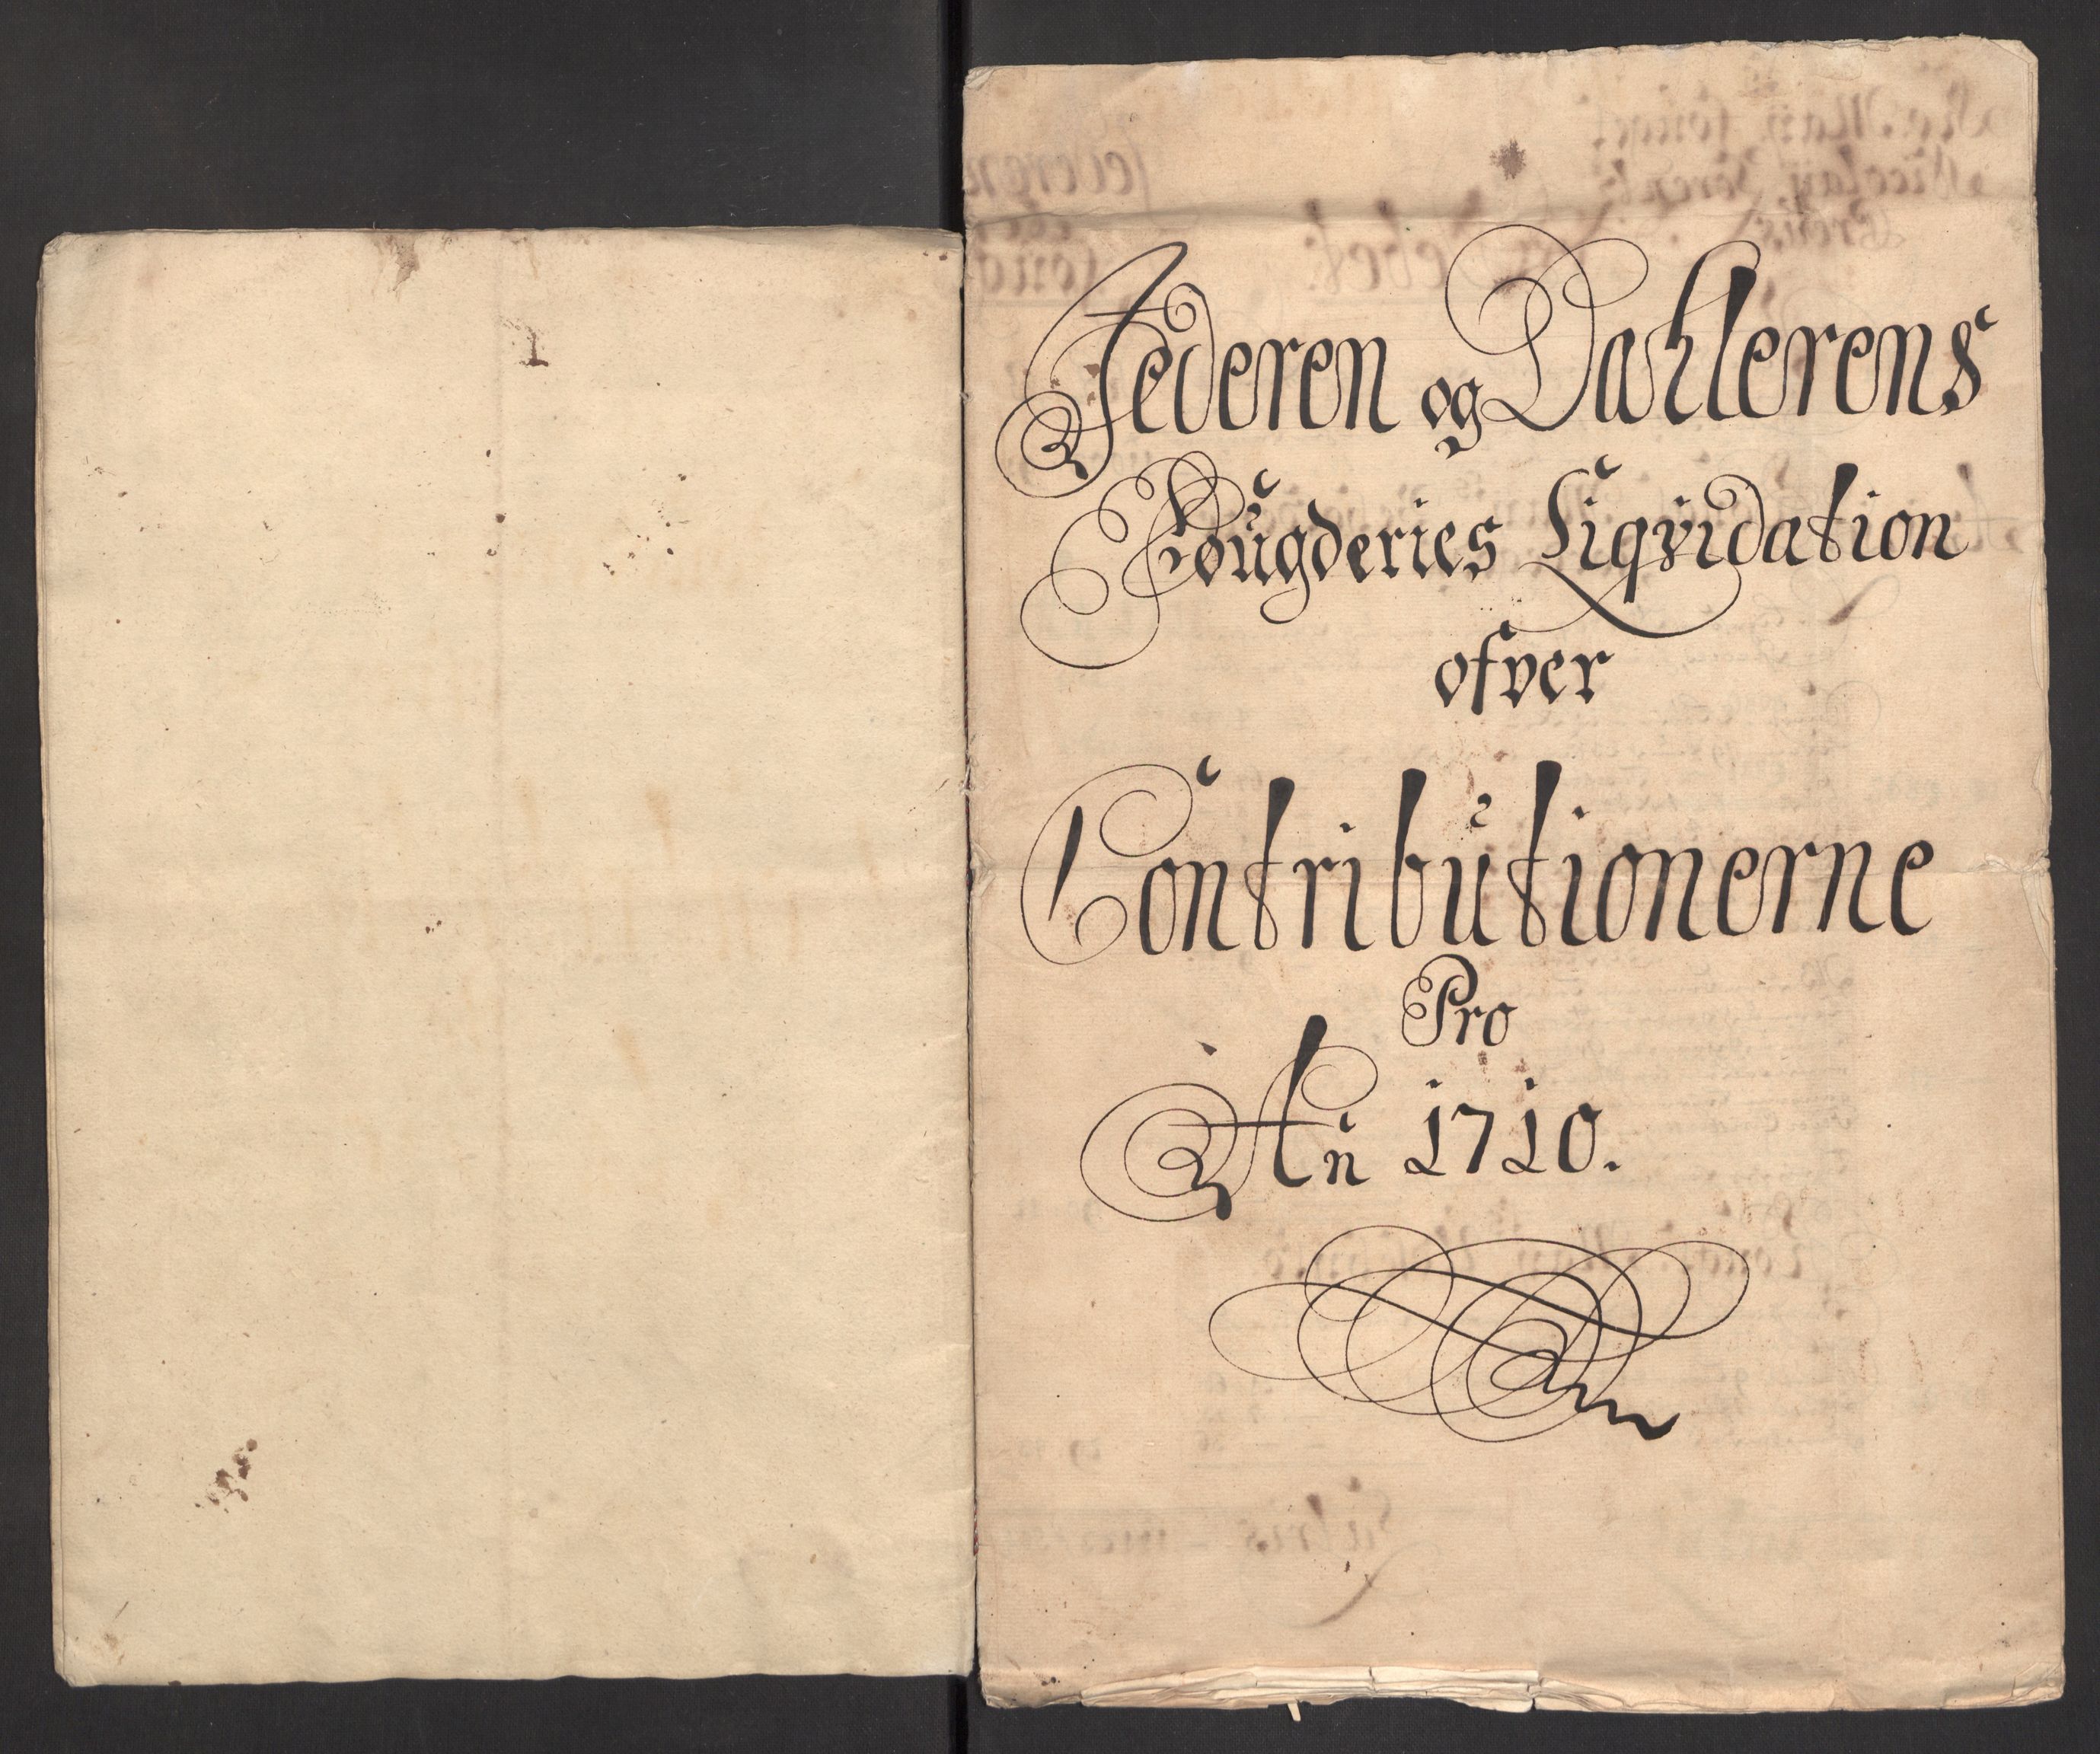 Jederen og Dahlerens
Fougderies Liqvidation
ofver
Contributionerne
Pro
An 1710.